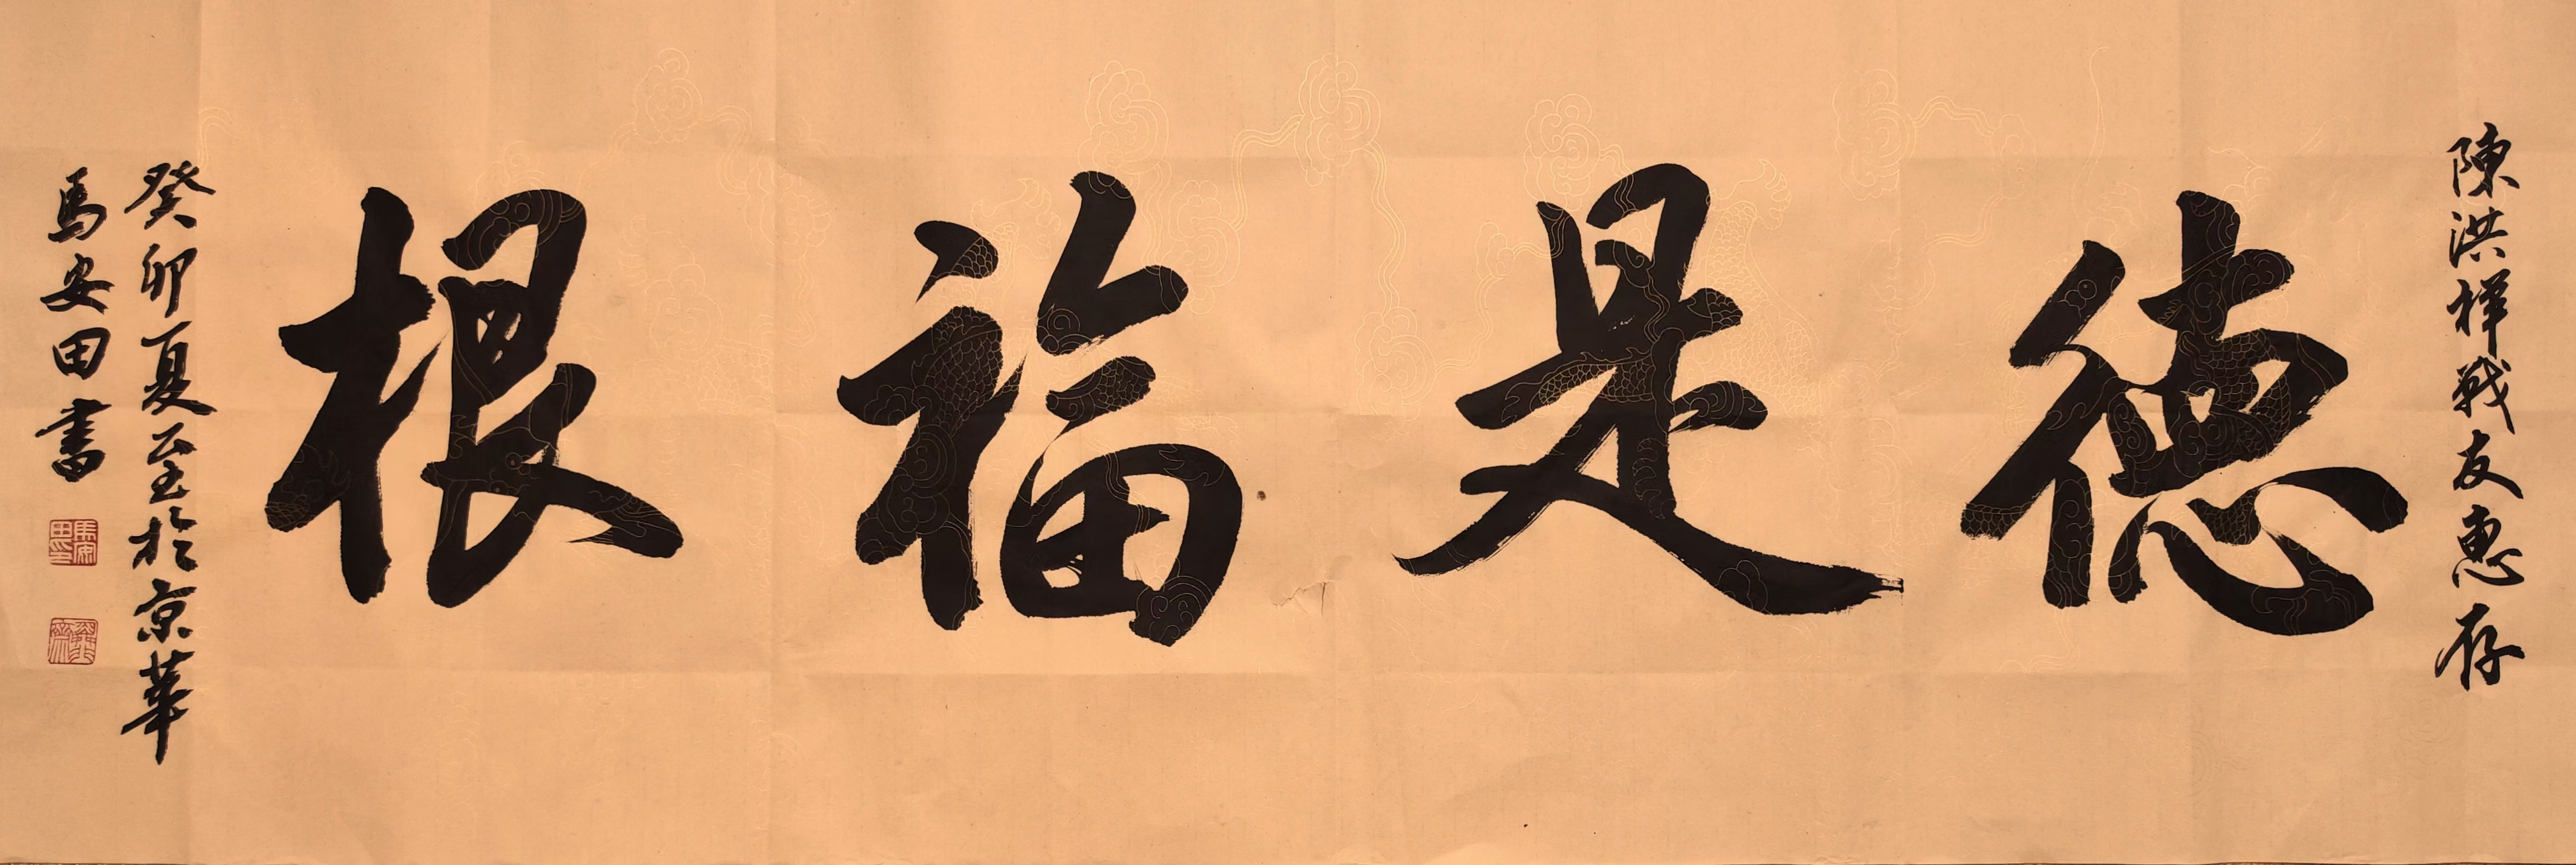 陳洪祥戰友惠存
德是福根
癸卯夏至於京華
馬安田書
馬安田印